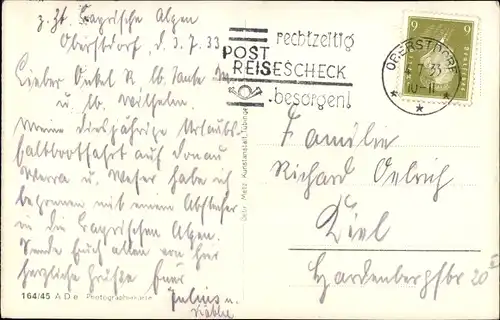 z. Zt. Bayrische Alpen
Oberstdorf, d. 3.7.33
Lieber Onkel R. lb. Tante M.
u. lb. Wilhelm.
Meine diesjährige Urlaubs-
faltbootfahrt auf Donau
Werra u. Weser habe ich
begonnen mit einem Abstecher
in die Bayrischen Alpen.
Sende Euch allen von hier
herzliche Grüße Euer
Julius u.
164/45 A.D.e. Photographiekarte
Dr. Metz Kunstanstalt, Tübingen
rechtzeitig
POST
REISESCHECK
besorgen!
9 9
OBERSTDORF
33
10-11
Familie
Richard Oelrich
Kiel
Hardenbergstr 20 I